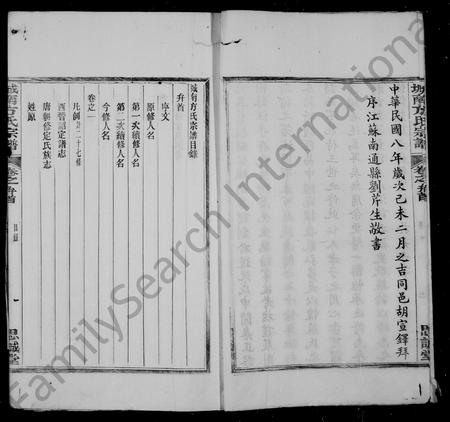 城南方氏宗譜
卷之一卷首
思誠堂
中華民國八年歲次己未二月之吉同邑胡宣鐸拜
序江蘇南通縣劉芹生敬書
城南方氏宗譜目錄
卷首
序文
原修人名
第一次續修人名
第二次續修人名
今修人名
卷之一
凡例計二十七條
西晉詔定譜誌
唐朝修定氏族志
姓源
城南方氏宗譜
卷之一卷首
目錄
思誠堂
FamilySearch International